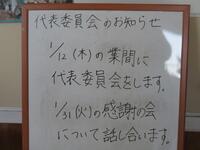 代表委員会のお知らせ
1/12(木)の業間に
代表委員会をします。
1/31(火)の感謝の会
について話し合います。